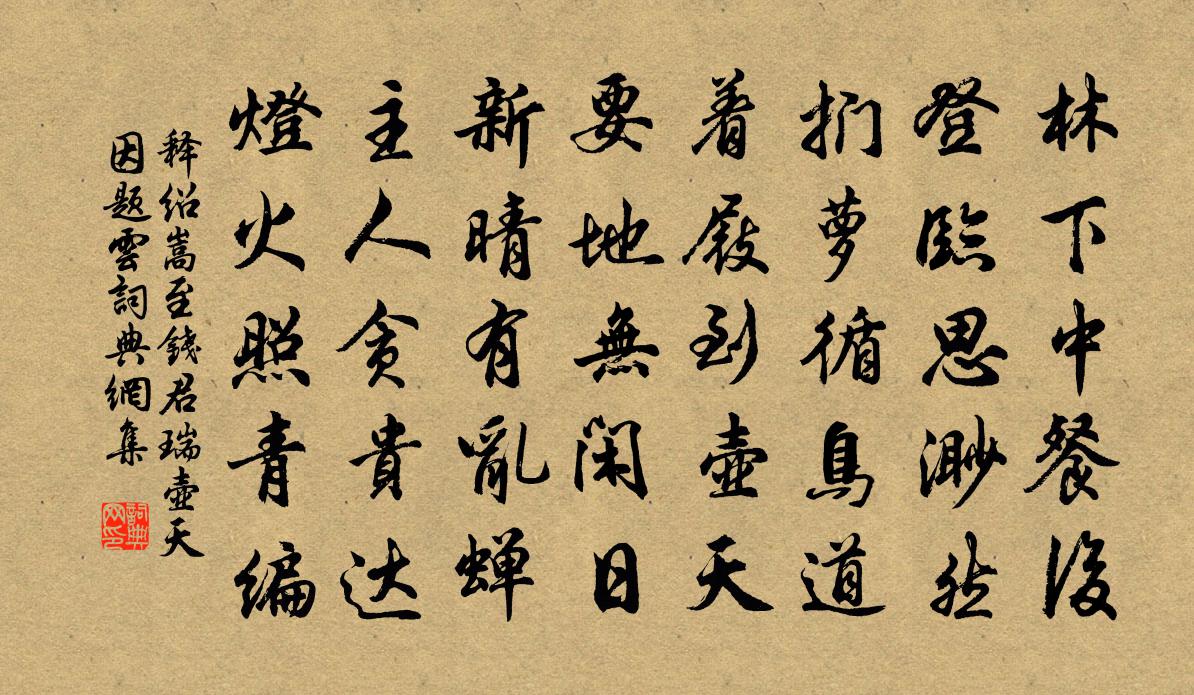 林下中餐後
登臨思渺然
捫萝循鳥道
着屐到壺天
要地無閑日
新晴有亂蝉
主人贪貴达
燈火照青编
释绍嵩至錢君瑞壺天
因题雲詞典網集
詞典网印